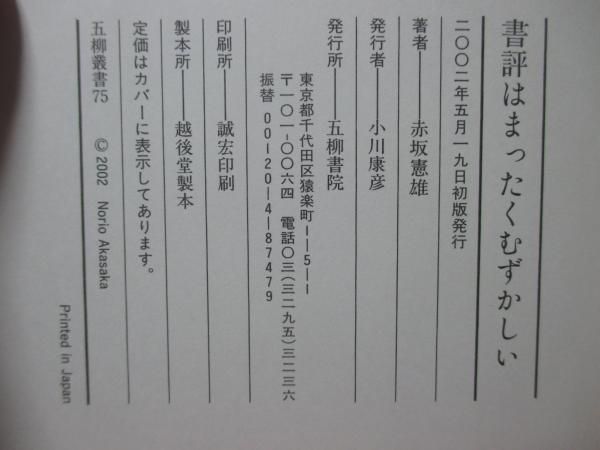 書評はまったくむずかしい
二〇〇二年五月一九日初版発行
著者――赤坂憲雄
発行者――小川康彦
発行所――五柳書院
東京都千代田区猿楽町一―五―一
〒一〇一―〇〇六四　電話〇三(三二九五)三三二六
振替　00―20―4―87479
印刷所――誠宏印刷
製本所――越後堂製本
定価はカバーに表示してあります。
五柳叢書75　© 2002　Norio Akasaka
Printed in Japan